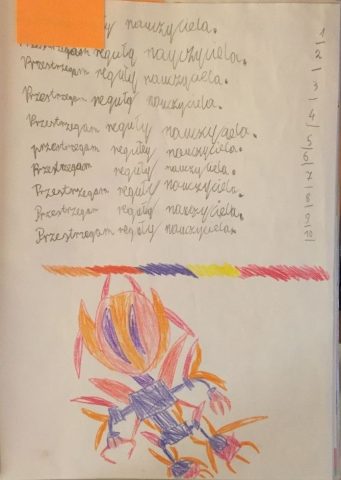 reguły nauczyciela. 1
Przestrzegam reguły nauczyciela. 2
Przestrzegam reguły nauczyciela. 3
Przestrzegam reguły nauczyciela. 4
Przestrzegam reguły nauczyciela. 5
przestrzegam reguły nauczyciela. 6
Przestrzegam reguły nauczyciela. 7
Przestrzegam reguły nauczyciela. 8
Przestrzegam reguły nauczyciela. 9
Przestrzegam reguły nauczyciela. 10